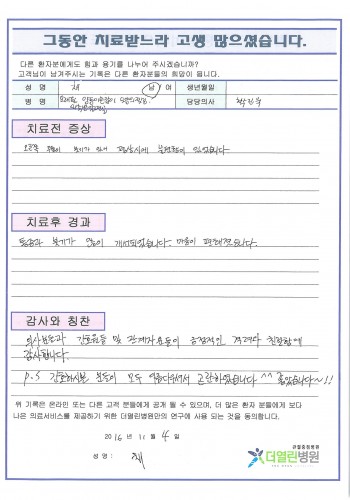 그동안 치료받느라 고생 많으셨습니다.
다른 환자분에게도 힘과 용기를 나누어 주시겠습니까?
고객님이 남겨주시는 기록은 다른 환자분들의 희망이 됩니다.
성 명 채 남 여 생년월일
병 명 담당의사
치료전 증상
오른쪽 붓기가 있어 불편함이 있었습니다
치료후 경과
통증과 붓기가 많이 개선되었습니다. 마음이 편해졌습니다.
감사와 칭찬
의사분들과 간호원들 및 관계자분들이 긍정적인 격려와 친절함에
감사합니다.
P.S 간호하시는 분들이 모두 예쁘다우셔서 곤란하였습니다 ^^ 좋았습니다~!!
위 기록은 온라인 또는 다른 고객 분들에게 공개 될 수 있으며, 더 많은 환자 분들에게 보다
나은 의료서비스를 제공하기 위한 더열린병원만의 연구에 사용 되는 것을 동의합니다.
2016 년 11 월 4 일
성 명 : 채
관절중점병원
더열린병원